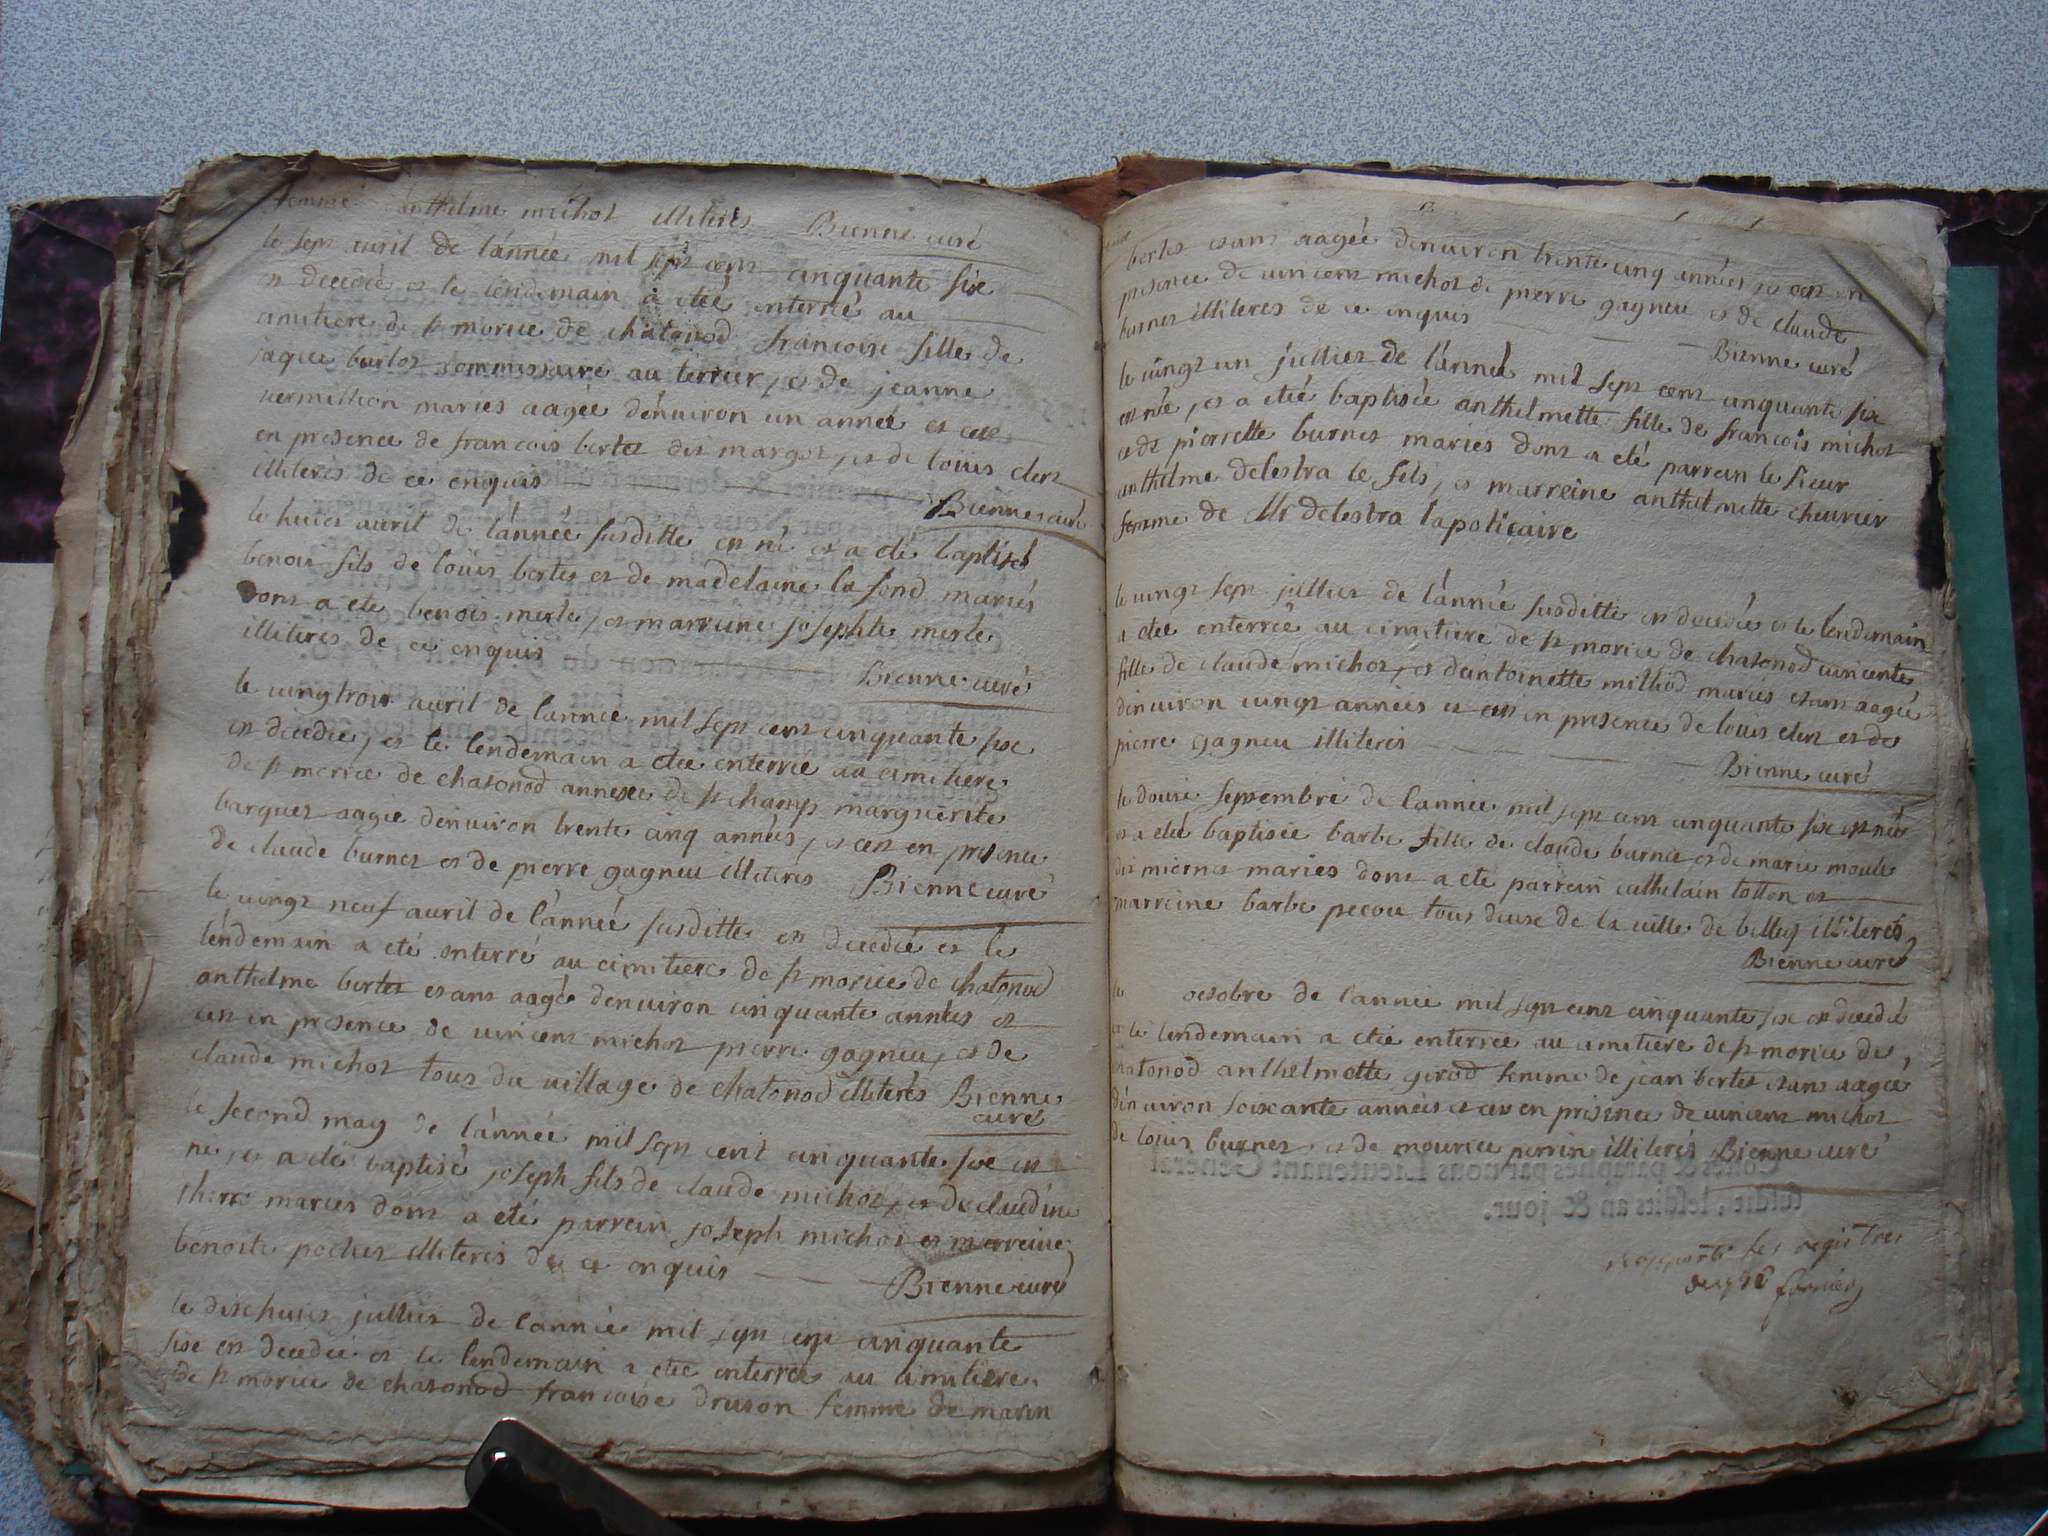 femme anthelme michoz illiterés Bienne curé
le sept avril de l'année mil sept cent cinquante sixe
est decedé et le lendemain a eteé enterré au
cimitiere de st morice de chatonod francoise fille de
jaque burloz commissaire au terrier, et de jeanne
vermillion mariés aagée d'enuiron un année et ce
en presence de francois bertet dit margoz, et de louis clerz
illiterés de ce enquis Bienne curé
le huict auril de l'année susditte est né et a eté baptisé
benoit fils de louis bertet et de madelaine la fond mariés
dont a ete benoit merle, et marreine josephte merle
illiteres de ce enquis
Bienne curé
le vingtrois auril de l'année mil sept cent cinquante sixe
est decedée, et le lendemain a etée enterrée au cimitiere
de st morice de chatonod annexe de st champ marguerite
barquet aagée d'enuiron trente cinq années, et cest en presence
de claude burnet et de pierre gagneu illiterés Bienne curé
le vingt neuf auril de l'année susditte est decedé et le
lendemain a eté enterré au cimitiere de st morice de chatonod
anthelme bertet viuans aagé denuiron cinquante années et
cest en presence de vincent michoz pierre gagneu, et de
claude michoz tous du village de chatonod illiterés Bienne
curé
le second may de l'année mil sept cent cinquante sixe est
né, et a eté baptisé joseph fils de claude michoz, et de claudine
mariés dont a eté parrein joseph michoz et marreine
benoite pochet illiterés de ce enquis Bienne curé
le dixhuict jullier de l'année mil sept cent cinquante
sixe est decedée et le lendemain a etée enterrée au cimitiere
de st morice de chatonod francoise druson femme de marin
bertet aagée denuiron trente cinq années, et cest en
presence de vincent michoz de pierre gagneu et de claude
burnet illiteres de ce enquis
Bienne curé
le vingt un jullier de l'année mil sept cent cinquante sixe
est née, et a eteé baptisée anthelmette fille de francois michoz
et de pierrette burnet mariés dont a eté parrein le sieur
anthelme delestra le fils, et marreine anthelmette cheurier
femme de Mr delestra lapoticaire
le vingt sept jullier de l'année susditte est decedée et le lendemain
a etée enterrée au cimitiere de st morice de chatonod vincente
fille de claude michoz, et dantoinette milliod mariés aagée
denuiron vingt années et cest en presence de louis clerz et de
pierre gagneu illiterés
Bienne curé
le douze septembre de l'année mil sept cent cinquante sixe est née
et a eteé baptisée barbe fille de claude burnet et de marie moule
mariés dont a eté parrein tollon et
marreine barbe pecou tous deuxe de la ville de belley illiterés
Bienne curé
le octobre de l'année mil sept cent cinquante sixe est decedé
et le lendemain a etée enterrée au cimitiere de st morice de
chatonod anthelmette girod femme de jean bertet aagée
denuiron soixante années et cest en presence de vincent michoz
de louis burnet, et de mourice perrin illiterés Bienne curé
Cottés & paraphés par nous Lieutenant Général
susdit, lesdits an & jour.
rapporté les registres